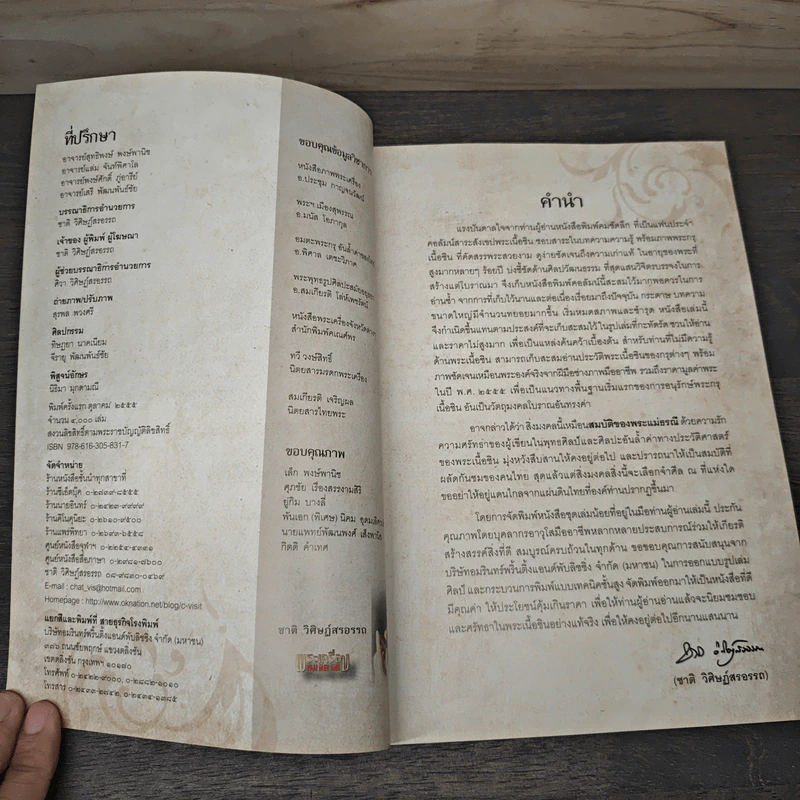 ที่ปรึกษา
อาจารย์สุทธิพงษ์ พงษ์พานิช
อาจารย์แล่ม จันท์พิศาโล
อาจารย์พงษ์ศักดิ์ ภู่อารีย์
อาจารย์เสรี พัฒนพันธ์ชัย
บรรณาธิการอำนวยการ
ชาติ วิศิษฏ์สรอรรถ
เจ้าของ ผู้พิมพ์ ผู้โฆษณา
ชาติ วิศิษฏ์สรอรรถ
ผู้ช่วยบรรณาธิการอำนวยการ
ศิวา วิศิษฏ์สรอรรถ
ถ่ายภาพ/ปรับภาพ
สุรพล พวงศรี
ศิลปกรรม
ทิษฎยา นาคเนียม
จีรายุ พัฒนพันธ์ชัย
พิสูจน์อักษร
นิธิมา มุกดามณี
พิมพ์ครั้งแรก ตุลาคม/ ๒๕๕๕
จำนวน ๔,๐๐๐ เล่ม
สงวนลิขสิทธิ์ตามพระราชบัญญัติลิขสิทธิ์
ISBN 978-616-305-831-7
จัดจำหน่าย
ร้านหนังสือชั้นนำทุกสาขาที่
ร้านซีเอ็ดบุ๊ค ๐-๒๗๓๙-๘๕๕๕
ร้านนายอินทร์ ๐-๒๔๒๓-๙๙๙๙
ร้านคิโนคูนิยะ ๐-๒๖๑๐-๙๕๐๐
ร้านแพร่พิทยา ๐-๒๙๓๗-๘๕๕๕
ศูนย์หนังสือจุฬาฯ
ศูนย์หนังสือสื่อภาษา
ชาติ วิศิษฏ์สรอรรถ
E-mail : chat_vis@hotmail.com
Homepage : http://www.oknation.net/blog/c-visit
แยกสีและพิมพ์ที่ สายธุรกิจโรงพิมพ์
บริษัทอมรินทร์พริ้นติ้งแอนด์พับลิชชิ่ง จำกัด (มหาชน)
๓๗๖ ถนนชัยพฤกษ์ แขวงตลิ่งชัน
เขตตลิ่งชัน กรุงเทพฯ ๑๐๑๗๐
โทรศัพท์ ๐-๒๔๒๒-๙๐๐๐, ๐-๒๘๘๒-๑๐๑๐
โทรสาร ๐-๒๔๓๓-๒๗๔๒, ๐-๒๔๓๔-๑๓๘๕
ขอบคุณข้อมูลวิชาการ
หนังสือภาพพระเครื่อง
อ.ประชุม กาญจนวัฒน์
พระฯ เมืองสุพรรณ
อ.มนัส โอภากุล
อมตะพระกรุ อันล้ำค่า
อ.พิศาล เตชะวิภาค
พระพุทธรูปศิลปะสมัยอยุธยา
อ.สมเกียรติ โล่ห์เพชรัตน์
หนังสือพระเครื่องจังหวัด
สำนักพิมพ์คเณศ์พร
ทวี วงษ์สิทธิ์
นิตยสารมรดกพระเครื่อง
สมเกียรติ เจริญผล
นิตยสารไทยพระ
ขอบคุณภาพ
เล็ก พงษ์พานิช
ศุภชัย เรืองสรรงามสิริ
ยู่กิม บางลี่
พันเอก (พิเศษ) นิคม
นายแพทย์พัฒนพงศ์
กิตติ คำเทศ
ชาติ วิศิษฏ์สรอรรถ
คำนำ
แรงบันดาลใจจากท่านผู้อ่านหนังสือพิมพ์คมชัดลึก ที่เป็นแฟนประจำ
คอลัมน์สาระสังเขปพระเนื้อชิน ชอบสาระในบทความความรู้ พร้อมภาพพระกรุ
เนื้อชิน ที่คัดสรรพระสวยงาม ดูง่ายชัดเจนถึงความเก่าแท้ ในอายุของพระที่
สูงมากหลายๆ ร้อยปี บ่งชี้ชัดด้านศิลปวัฒนธรรม ที่สุดแสนวิจิตรบรรจงในการ
สร้างแต่โบราณมา จึงเก็บหนังสือพิมพ์คอลัมน์นี้สะสมไว้มากพอควรในการ
อ่านช้า จากการที่เก็บไว้นานและต่อเนื่องเรื่อยมาถึงปัจจุบัน กระดาษ บทความ
ขนาดใหญ่มีจำนวนทยอยมากขึ้น เริ่มหมดสภาพและชำรุด หนังสือเล่มนี้
จึงกำเนิดขึ้นแทนตามประสงค์ที่จะเก็บสะสมไว้ในรูปเล่มที่กะทัดรัด ชวนให้อ่าน
และราคาไม่สูงมาก เพื่อเป็นแหล่งค้นคว้าเบื้องต้น สำหรับท่านที่ไม่มีความรู้
ด้านพระเนื้อชิน สามารถเก็บสะสมอ่านประวัติพระเนื้อชินของกรุต่างๆ พร้อม
ภาพชัดเจนเหมือนพระองค์จริงจากฝีมือช่างภาพมืออาชีพ รวมถึงราคามูลค่าพระ
ในปี พ.ศ. ๒๕๕๕ เพื่อเป็นแนวทางพื้นฐานเริ่มแรกของการอนุรักษ์พระกรุ
เนื้อชิน อันเป็นวัตถุมงคลโบราณอันทรงค่า
อาจกล่าวได้ว่า สิ่งมงคลนี้เหมือนสมบัติของพระแม่ธรณี ด้วยความรัก
ความศรัทธาของผู้เขียนในพุทธศิลป์และศิลปะอันล้ำค่าทางประวัติศาสตร์
ของพระเนื้อชิน มุ่งหวังสืบสานให้คงอยู่ต่อไป และปรารถนาให้เป็นสมบัติที่
ผลัดกันชมของคนไทย สุดแล้วแต่สิ่งมงคลสิ่งนี้จะเลือกจำศีล ณ ที่แห่งใด
ขออย่าให้อยู่แดนไกลจากแผ่นดินไทยที่องค์ท่านปรากฏขึ้นมา
โดยการจัดพิมพ์หนังสือชุดเล่มน้อยที่อยู่ในมือท่านผู้อ่านเล่มนี้ ประกัน
คุณภาพโดยบุคลากรอาวุโสมืออาชีพหลากหลายประสบการณ์ร่วมให้เกียรติ
สร้างสรรค์สิ่งที่ดี สมบูรณ์ครบถ้วนในทุกด้าน ขอขอบคุณการสนับสนุนจาก
บริษัทอมรินทร์พริ้นติ้งแอนด์พับลิชชิ่ง จำกัด (มหาชน) ในการออกแบบรูปเล่ม
ศิลป์ และกระบวนการพิมพ์แบบเทคนิคชั้นสูง จัดพิมพ์ออกมาให้เป็นหนังสือที่ดี
มีคุณค่า ให้ประโยชน์คุ้มเกินราคา เพื่อให้ท่านผู้อ่านอ่านแล้วจะนิยมชมชอบ
และศรัทธาในพระเนื้อชินอย่างแท้จริง เพื่อให้คงอยู่ต่อไปอีกนานแสนนาน
(ชาติ วิศิษฏ์สรอรรถ)